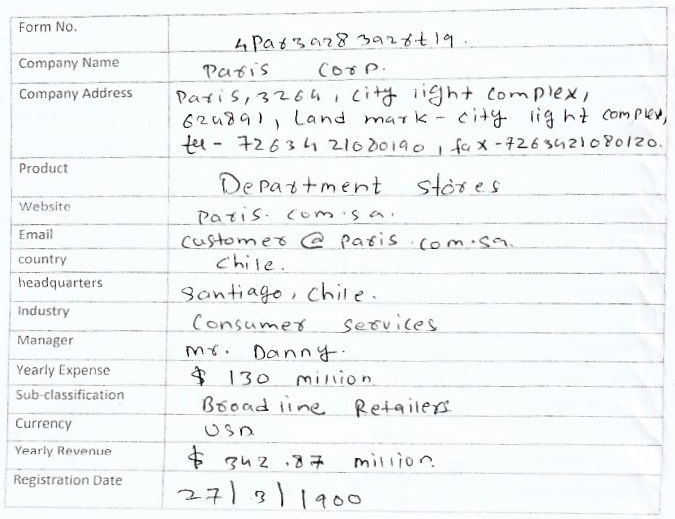 Form No. 4Par3ar83arrt19.
Company Name Paris Corp.
Company Address Paris, 3264, city iight complex,
624891, Land mark - city light complex,
tel - 7263421080190, fax - 7263421080120.
Product Department stores
Website Paris.com.sa.
Email customer @ paris.com.sa.
country Chile.
headquarters Santiago, Chile.
Industry Consumer services
Manager Mr. Danny.
Yearly Expense $ 130 million
Sub-classification Broad iine Retailers
Currency USD
Yearly Revenue $ 342.87 million
Registration Date 27/3/1900